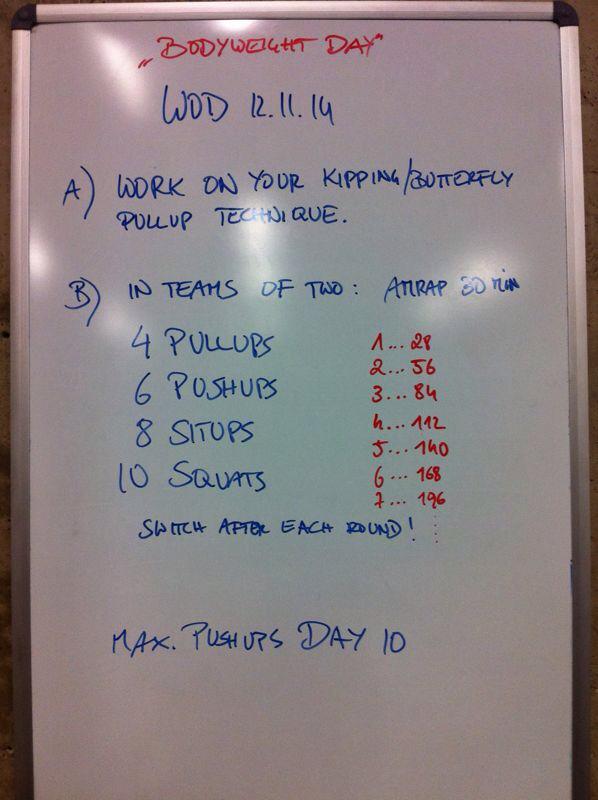 „BODYWEIGHT DAY"
WOD 12.11.14
A) WORK ON YOUR KIPPING/BUTTERFLY
PULLUP TECHNIQUE.
B) IN TEAMS OF TWO: AMRAP 30 MIN
4 PULLUPS
6 PUSHUPS
8 SITUPS
10 SQUATS
1...28
2...56
3...84
4...112
5...140
6...168
7...196
SWITCH AFTER EACH ROUND!
MAX. PUSHUPS DAY 10